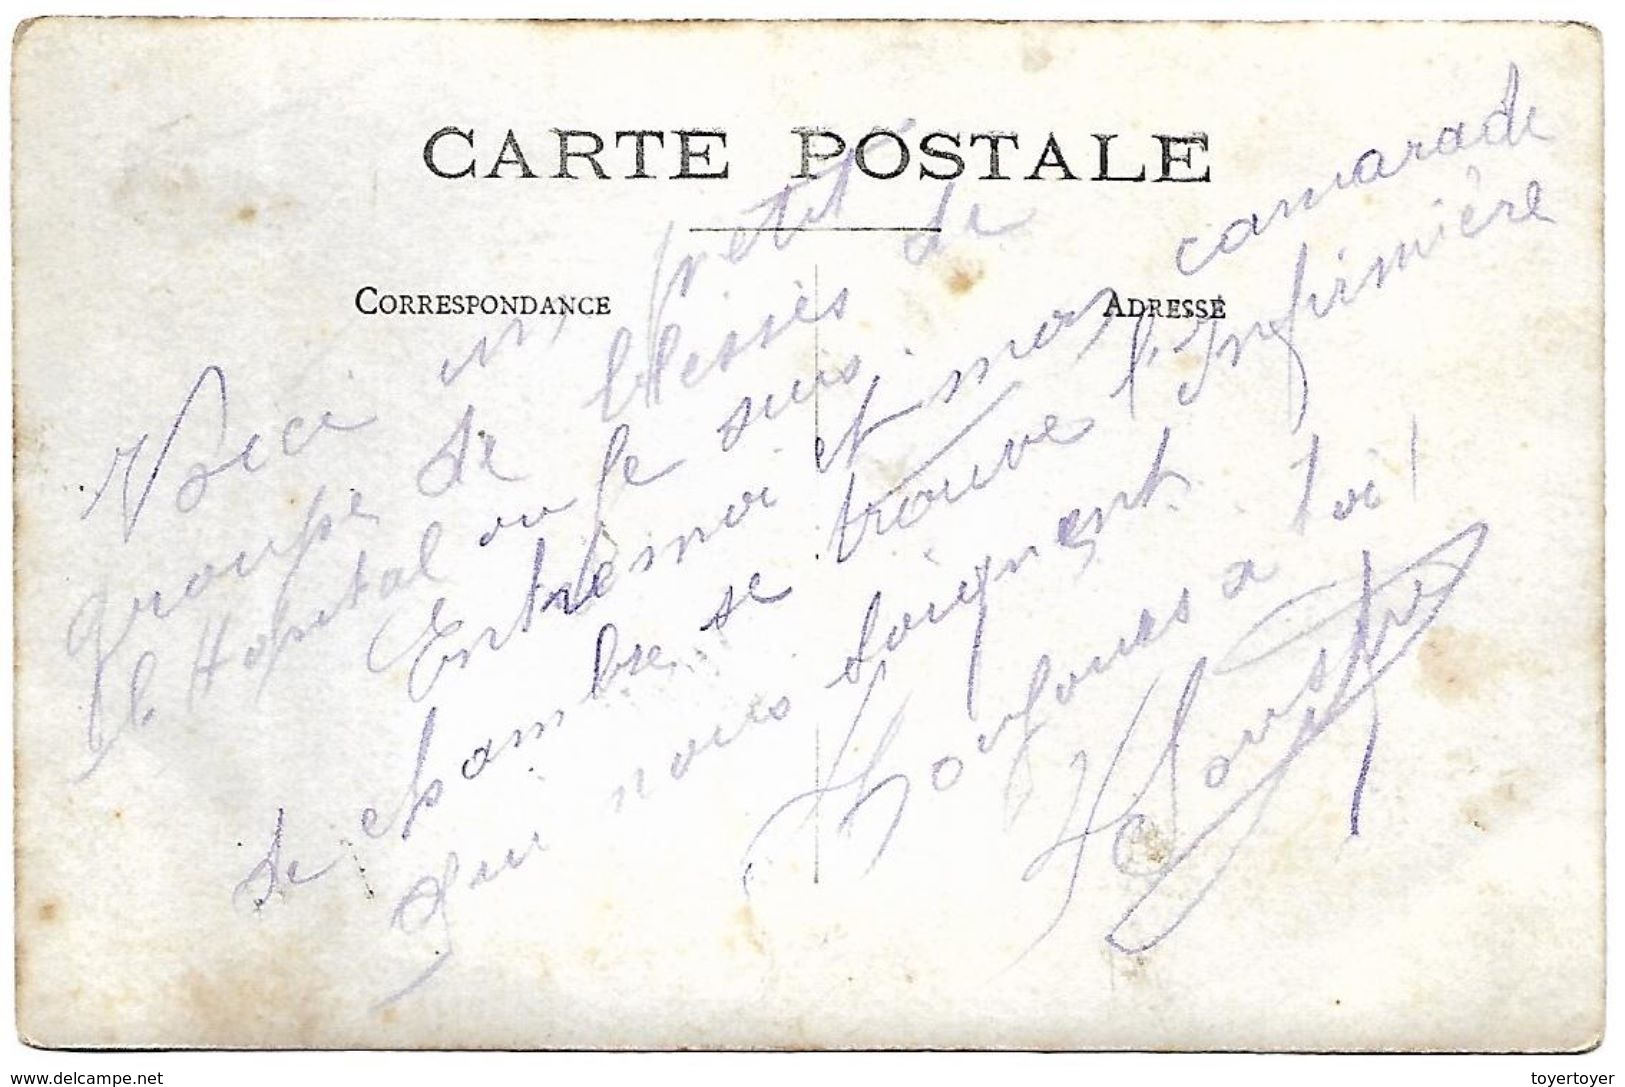 CARTE POSTALE
CORRESPONDANCE
ADRESSE
Voici un petit
groupe de blessés de
l'Hopital ou je suis.
Entre moi et mon camarade
de chambre se trouve l'Infirmière
qui nous soignent.
Toujours a toi!
www.delcampe.net
toyertoyer